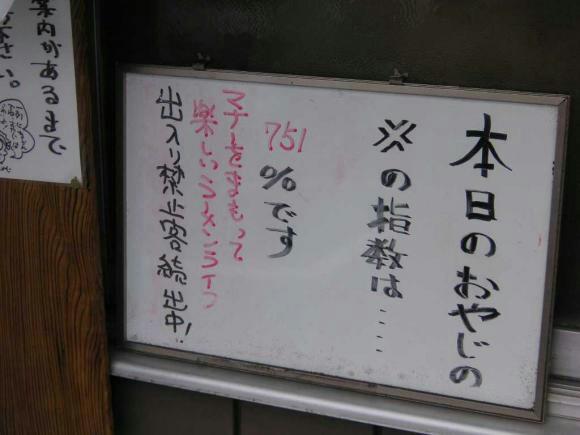 本日のおやじの
※の指数は‥‥
751%です
マナーをまもって
楽しいラーメンライフ
出入り禁止者続出中!
案内があるまで
下さい。